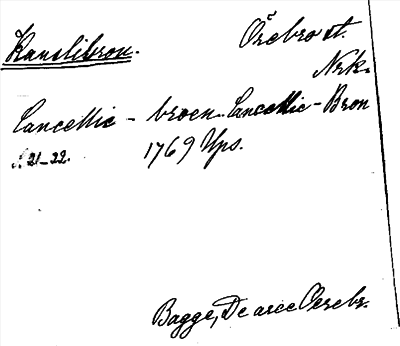 Kanslibron.
Örebro st.
Nrk.
Cancellie - broen. Cancellie - Bron
s. 21-22. 1769 Ups.
Bagge, De arce Oerebr.